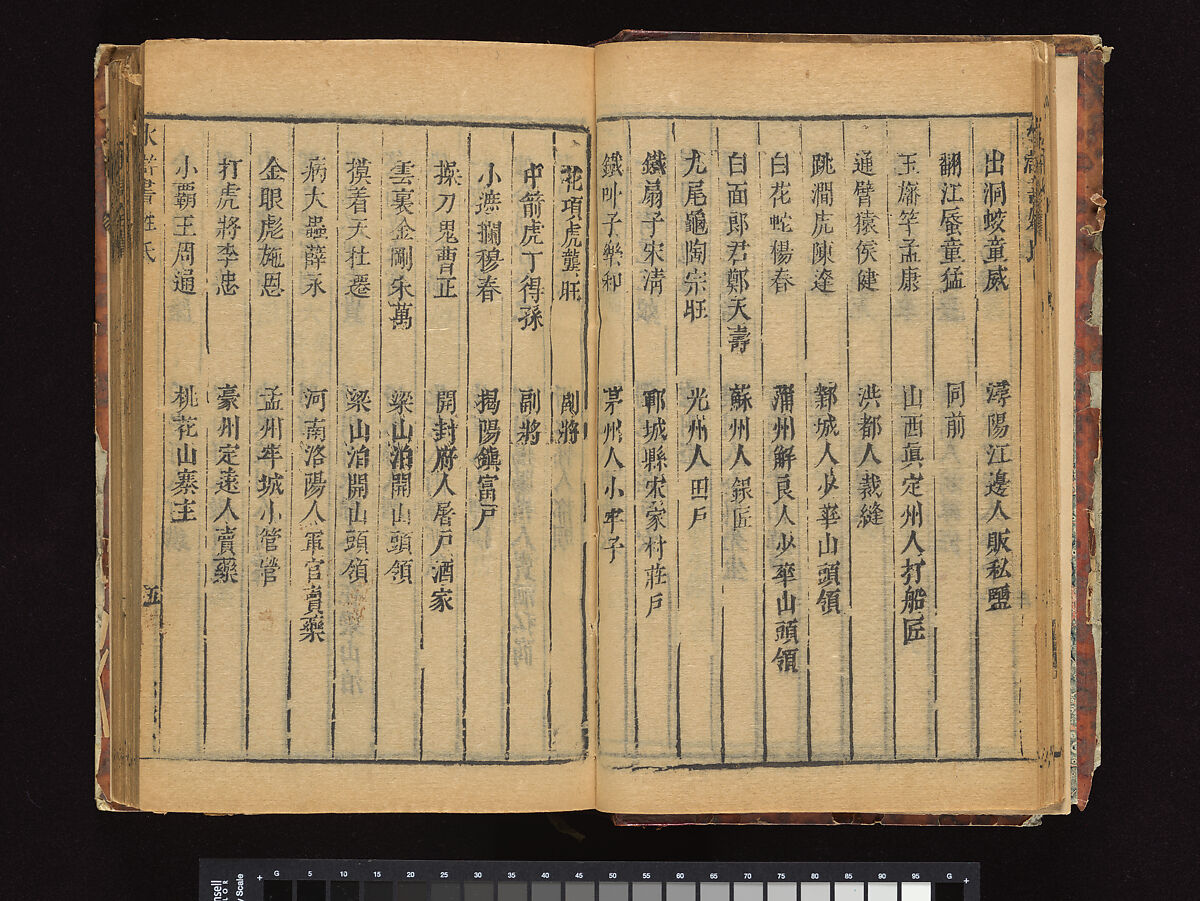 出洞蛟童威 潯陽江邊人販私鹽
翻江蜃童猛 同前
玉旛竿孟康 山西眞定州人打船匠
通臂猿侯健 洪都人裁縫
跳澗虎陳達 鄴城人少華山頭領
白花蛇楊春 蒲州解良人少華山頭領
白面郎君鄭天壽 蘇州人銀匠
九尾龜陶宗旺 光州人田戶
鐵扇子宋淸 鄆城縣宋家村莊戶
鐵叫子樂和 茅州人小牢子
花項虎龔旺 副將
中箭虎丁得孫 副將
小遮攔穆春 揭陽鎮富戶
操刀鬼曹正 開封府人屠戶酒家
雲裏金剛宋萬 梁山泊開山頭領
摸着天杜遷 梁山泊開山頭領
病大蟲薛永 河南洛陽人軍官賣藥
金眼彪施恩 孟州牢城小管營
打虎將李忠 豪州定遠人賣藥
小霸王周通 桃花山寨主
水滸書姓氏 五
G 5 10 20 30 40 45 50 55 60 65 70 75 80 85 90 95 G